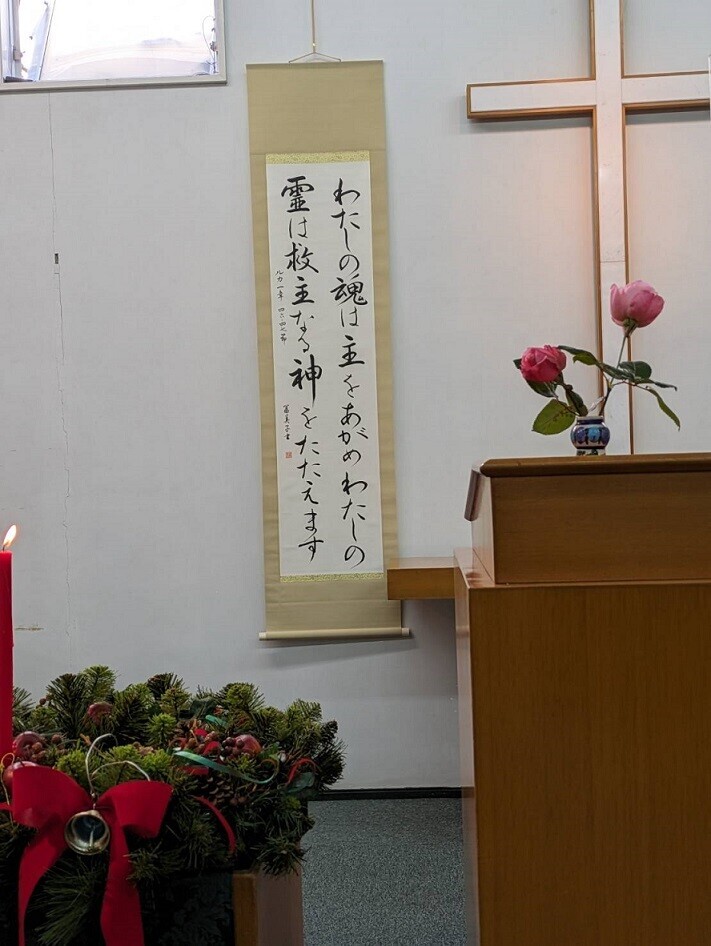 わたしの魂は主をあがめわたしの
霊は救主なる神をたたえます
ルカ一章 四六、四七節